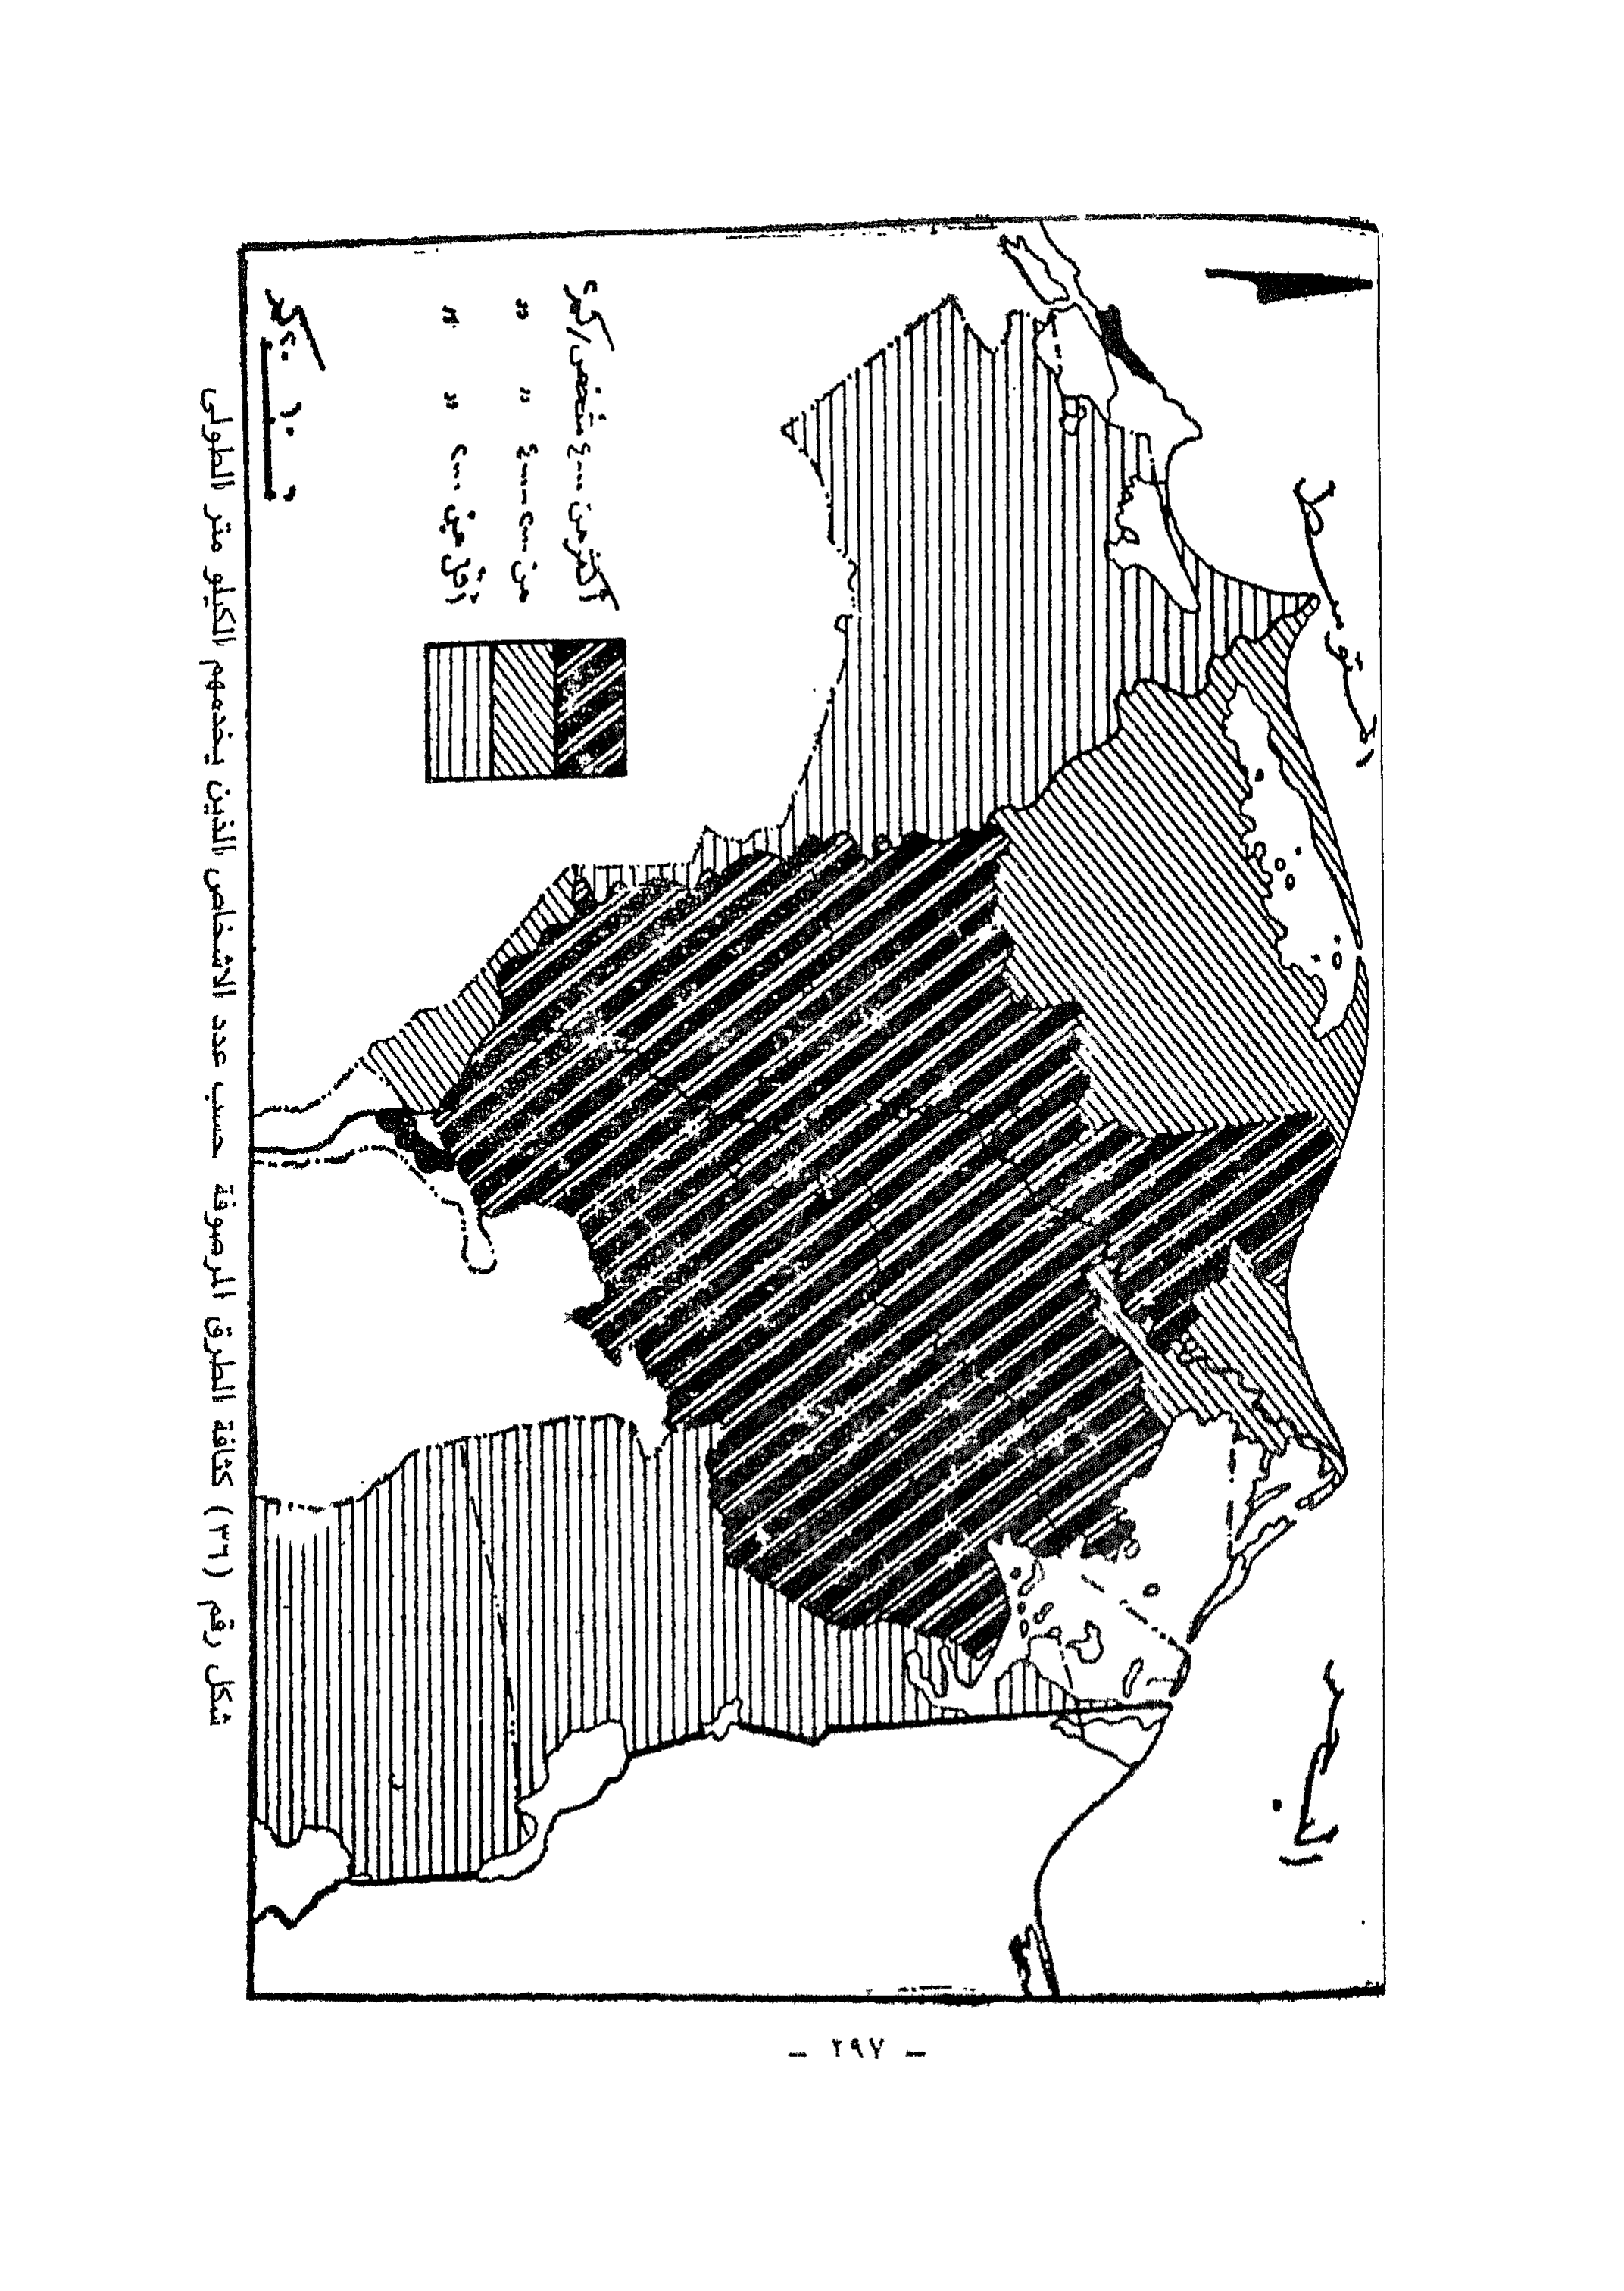 البحر المتوسط
أكثر من ٤٠٠٠ شخص/كم٢
من ٢٠٠٠-٤٠٠٠ " "
أقل من ٢٠٠٠ " "
٠ ١٠ ٢٠ كم
شكل رقم (٣٦) كثافة الطرق المرصوفة حسب عدد الاشخاص الذين يخدمهم الكيلو متر الطولى
ـ ٢٩٧ ـ